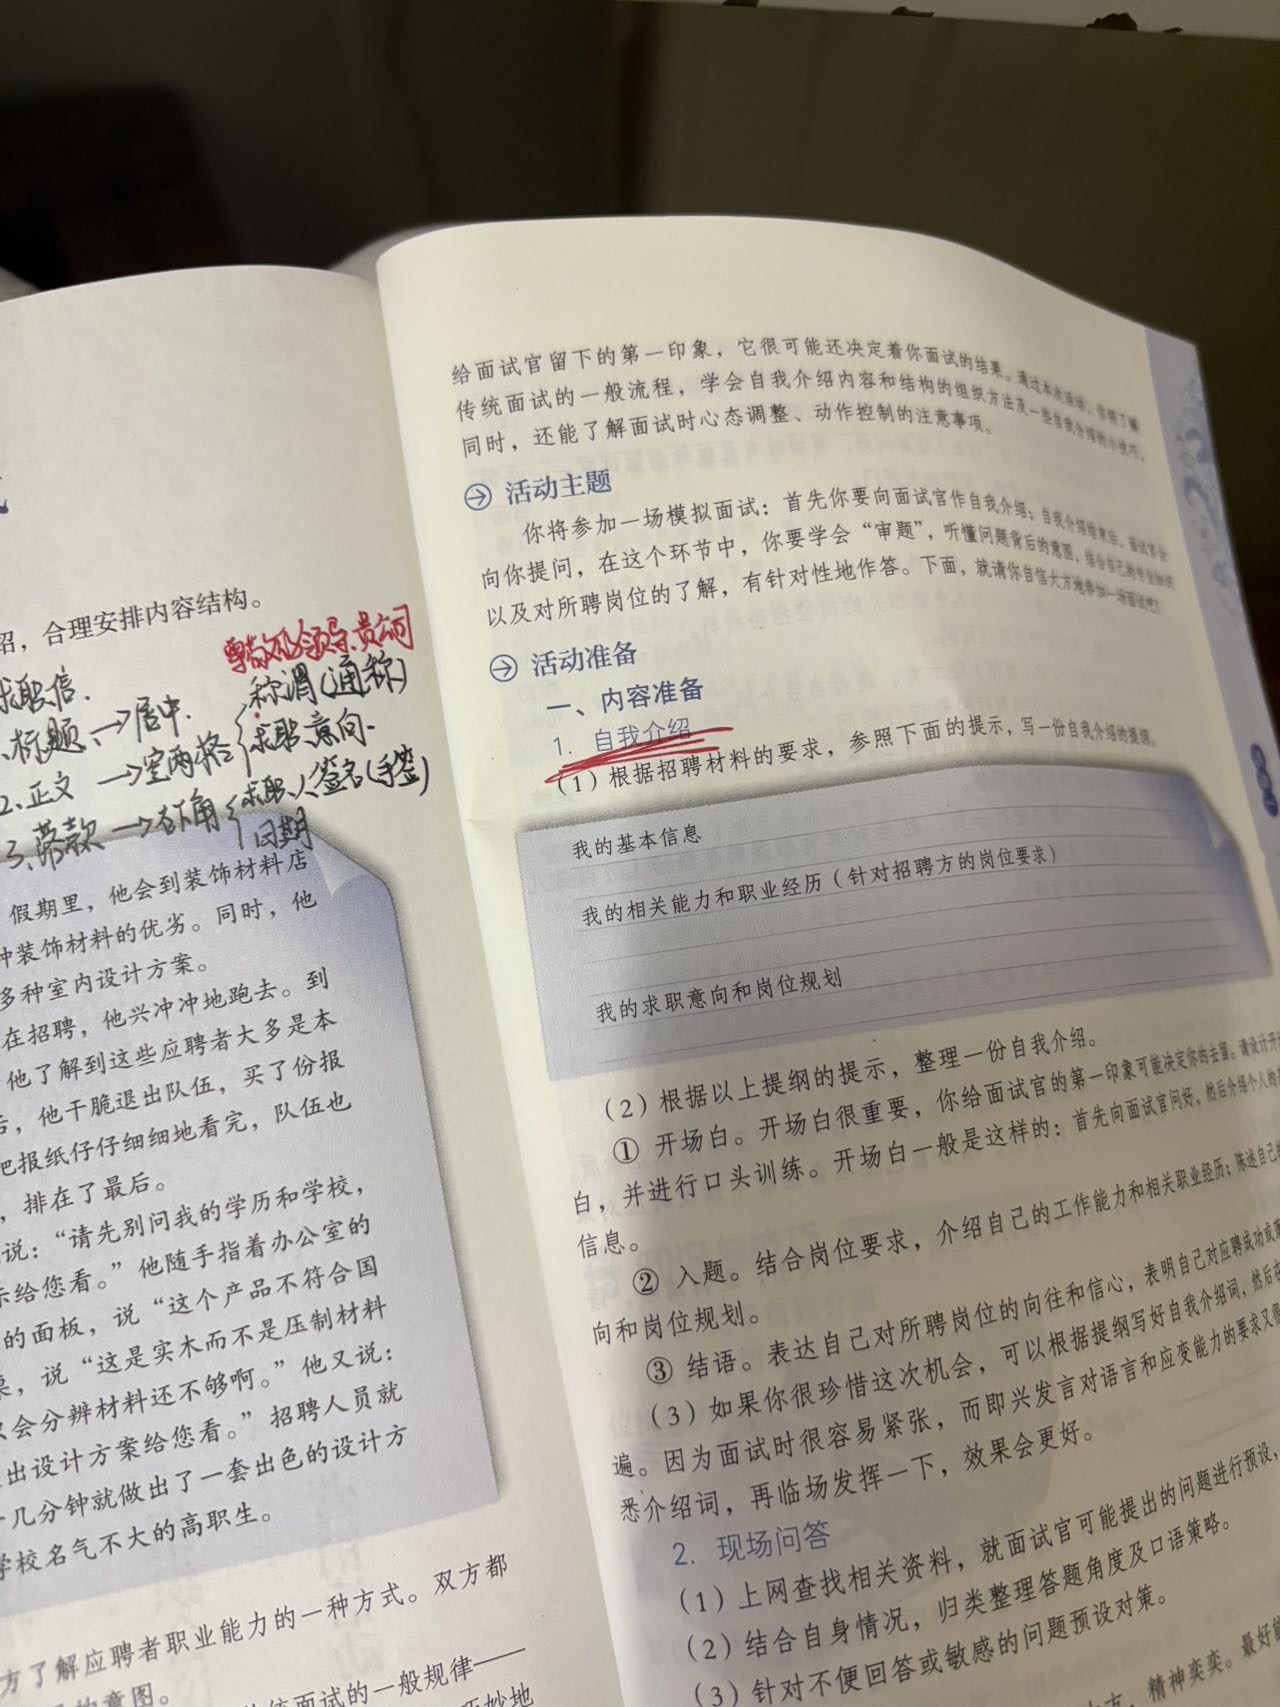 绍，合理安排内容结构。
求职信.
标题、→居中.
2、正文 →空两格
称谓(通称)
求职意向.
3、落款 →右下角
求职人签名(手签)
日期
假期里，他会到装饰材料店
种装饰材料的优劣。同时，他
多种室内设计方案。
在招聘，他兴冲冲地跑去。到
他了解到这些应聘者大多是本
，他干脆退出队伍，买了份报
把报纸仔仔细细地看完，队伍也
，排在了最后。
说：“请先别问我的学历和学校，
示给您看。”他随手指着办公室的
的面板，说“这个产品不符合国
，说“这是实木而不是压制材料
只会分辨材料还不够啊。”他又说：
出设计方案给您看。”招聘人员就
几分钟就做出了一套出色的设计方
学校名气不大的高职生。
方了解应聘者职业能力的一种方式。双方都
的意图。
统面试的一般规律——
给面试官留下的第一印象，它很可能还决定着你面试的结果。通过本次活动，你将了解
传统面试的一般流程，学会自我介绍内容和结构的组织方法及一些自我介绍的小技巧，
同时，还能了解面试时心态调整、动作控制的注意事项。
活动主题
你将参加一场模拟面试：首先你要向面试官作自我介绍；自我介绍结束后，面试官会
向你提问，在这个环节中，你要学会“审题”，听懂问题背后的意图，结合自己的专业知识
以及对所聘岗位的了解，有针对性地作答。下面，就请你自信大方地参加一场面试吧！
活动准备
一、内容准备
1. 自我介绍
（1）根据招聘材料的要求，参照下面的提示，写一份自我介绍的提纲。
我的基本信息
我的相关能力和职业经历（针对招聘方的岗位要求）
我的求职意向和岗位规划
（2）根据以上提纲的提示，整理一份自我介绍。
① 开场白。开场白很重要，你给面试官的第一印象可能决定你的去留。请设计开
白，并进行口头训练。开场白一般是这样的：首先向面试官问好，然后介绍个人的
信息。
② 入题。结合岗位要求，介绍自己的工作能力和相关职业经历；陈述自己的
向和岗位规划。
③ 结语。表达自己对所聘岗位的向往和信心，表明自己对应聘成功或
（3）如果你很珍惜这次机会，可以根据提纲写好自我介绍词，然后在
遍。因为面试时很容易紧张，而即兴发言对语言和应变能力的要求又很
悉介绍词，再临场发挥一下，效果会更好。
2. 现场问答
（1）上网查找相关资料，就面试官可能提出的问题进行预设，
（2）结合自身情况，归类整理答题角度及口语策略。
（3）针对不便回答或敏感的问题预设对策。
，精神奕奕。最好